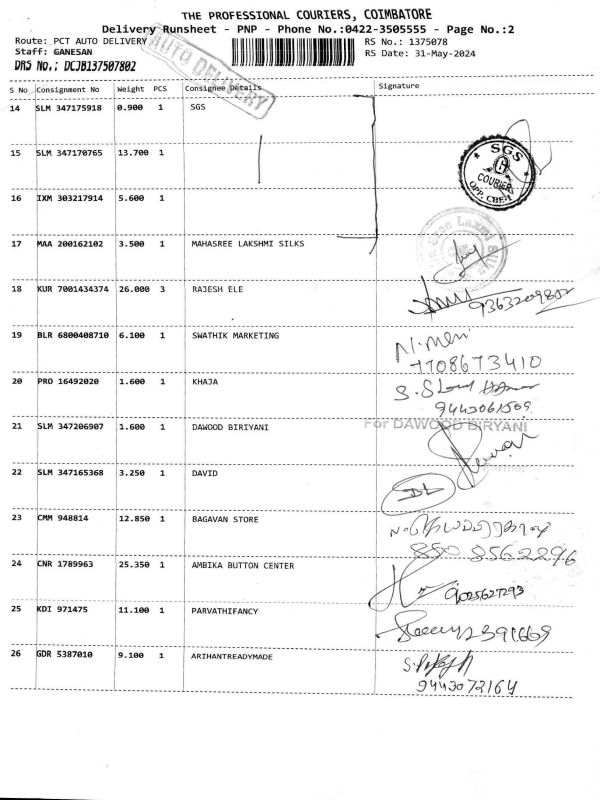 THE PROFESSIONAL COURIERS, COIMBATORE
Delivery Runsheet - PNP - Phone No.:0422-3505555 - Page No.:2
Route: PCT AUTO DELIVERY RS No.: 1375078
Staff: GANESAN RS Date: 31-May-2024
DRS No.: DCJB137507802
AUTO DELIVERY
S No Consignment No Weight PCS Consignee Details Signature
14 SLM 347175918 0.900 1 SGS
15 SLM 347170765 13.700 1
SGS
COURIER
OPP. CBE-1
16 IXM 303217914 5.600 1
17 MAA 200162102 3.500 1 MAHASREE LAKSHMI SILKS
18 KUR 7001434374 26.000 3 RAJESH ELE
9363209802
19 BLR 6800408710 6.100 1 SWATHIK MARKETING
N. Meni
7708673410
20 PRO 16492020 1.600 1 KHAJA
9443061509
21 SLM 347206907 1.600 1 DAWOOD BIRIYANI
For DAWOOD BIRYANI
22 SLM 347165368 3.250 1 DAVID
DL
23 CMM 948814 12.850 1 BAGAVAN STORE
850 8562296
24 CNR 1789963 25.350 1 AMBIKA BUTTON CENTER
9025627293
25 KDI 971475 11.100 1 PARVATHIFANCY
26 GDR 5387010 9.100 1 ARIHANTREADYMADE
9443072164